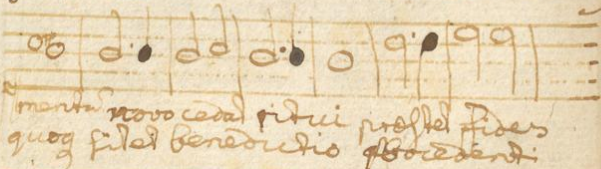 mentũ novo cedat ritui præstet fides
quoq sit et benedictio procedenti